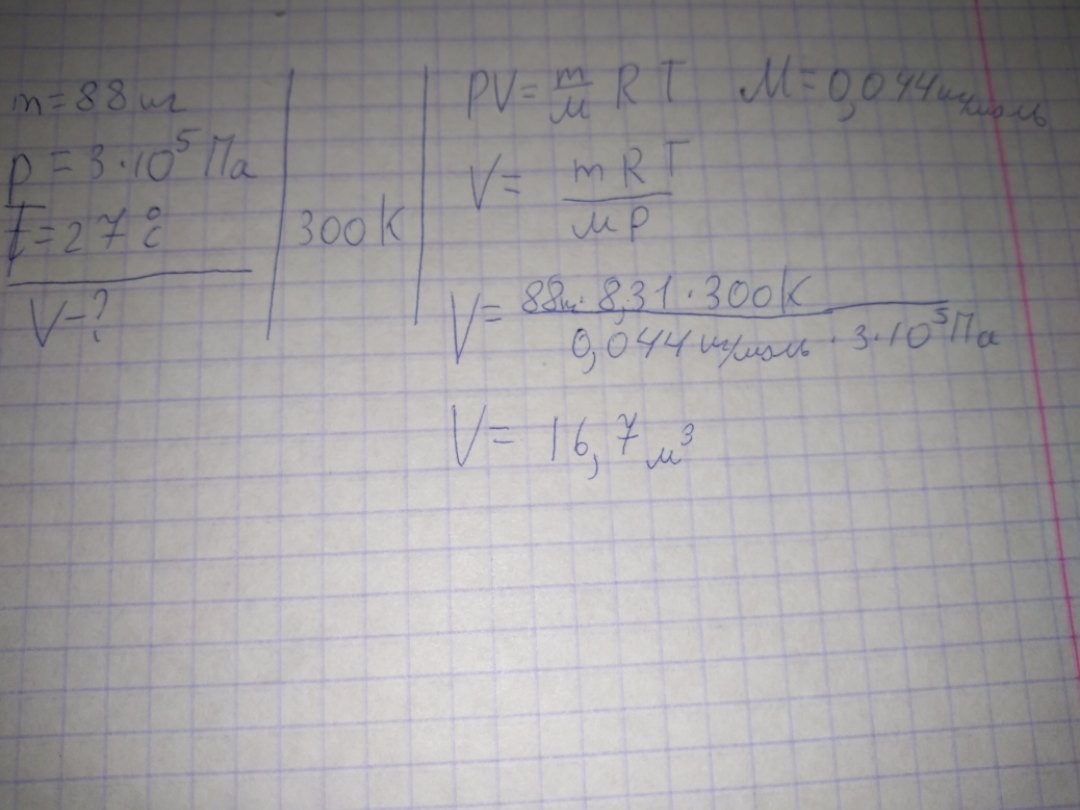 m = 88 кг
p = 3·10⁵ Па
t = 27 °C
V - ?
300 К
PV = m/M R T M = 0,044 кг/моль
V = m R T / M P
V = 88кг · 8,31 · 300К / 0,044 кг/моль · 3·10⁵ Па
V = 16,7 м³